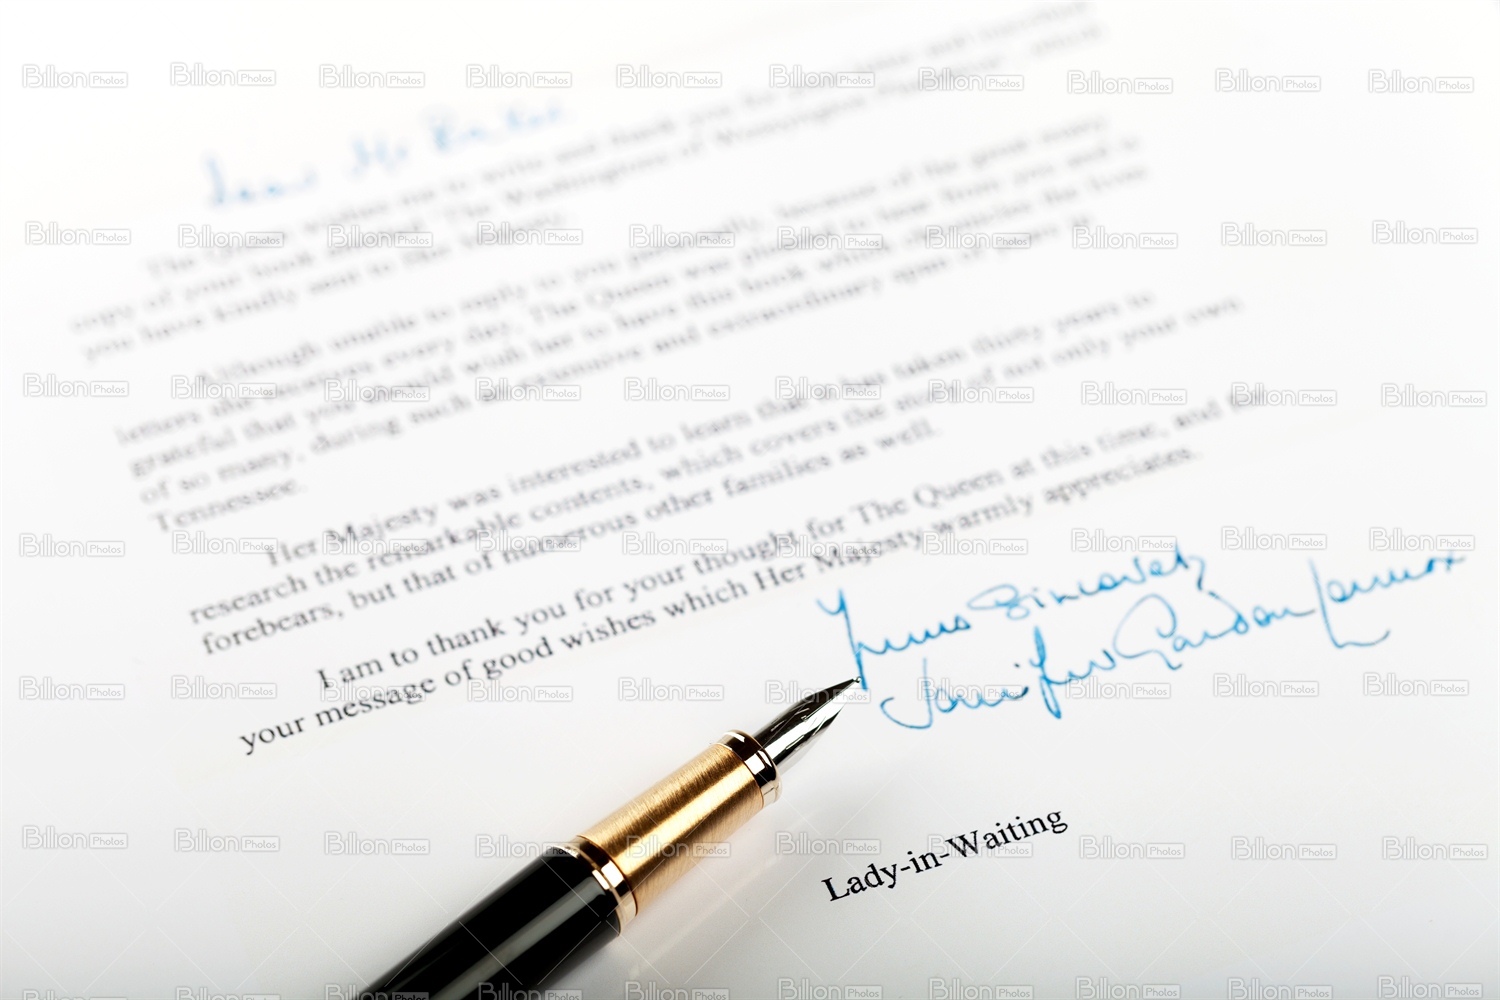 Dear Mr
The Queen wishes me to write and thank you for
copy of your book entitled "The Washingtons of
you have kindly sent to Her Majesty.
Although unable to reply to you personally, because of the great many
letters she receives every day, The Queen was pleased to hear from you and is
grateful that you should wish her to have this book which chronicles the lives
of so many, during such an extensive and extraordinary span of
Tennessee.
Her Majesty was interested to learn that it has taken thirty years to
research the remarkable contents, which covers the story of not only your own
forebears, but that of numerous other families as well.
I am to thank you for your thought for The Queen at this time, and for
your message of good wishes which Her Majesty warmly appreciates.
Yours Sincerely
Jennifer Gordon Lennox
Lady-in-Waiting
Billion Photos